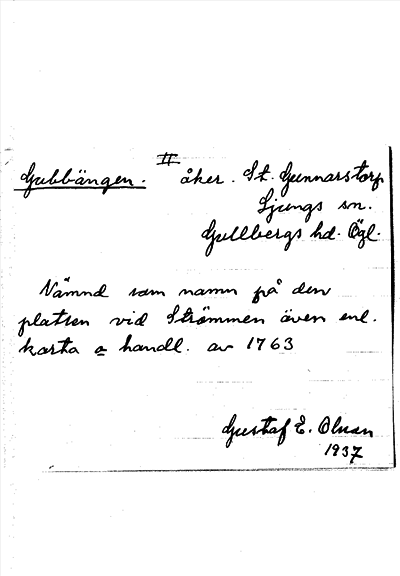 Gubbängen. II åker. St. Gunnarstorp
Ljungs sn.
Gullbergs hd. Ögl.
Nämnd som namn på den
platsen vid Strömmen även enl.
karta o handl. av 1763
Gustaf E. Olsson
1937